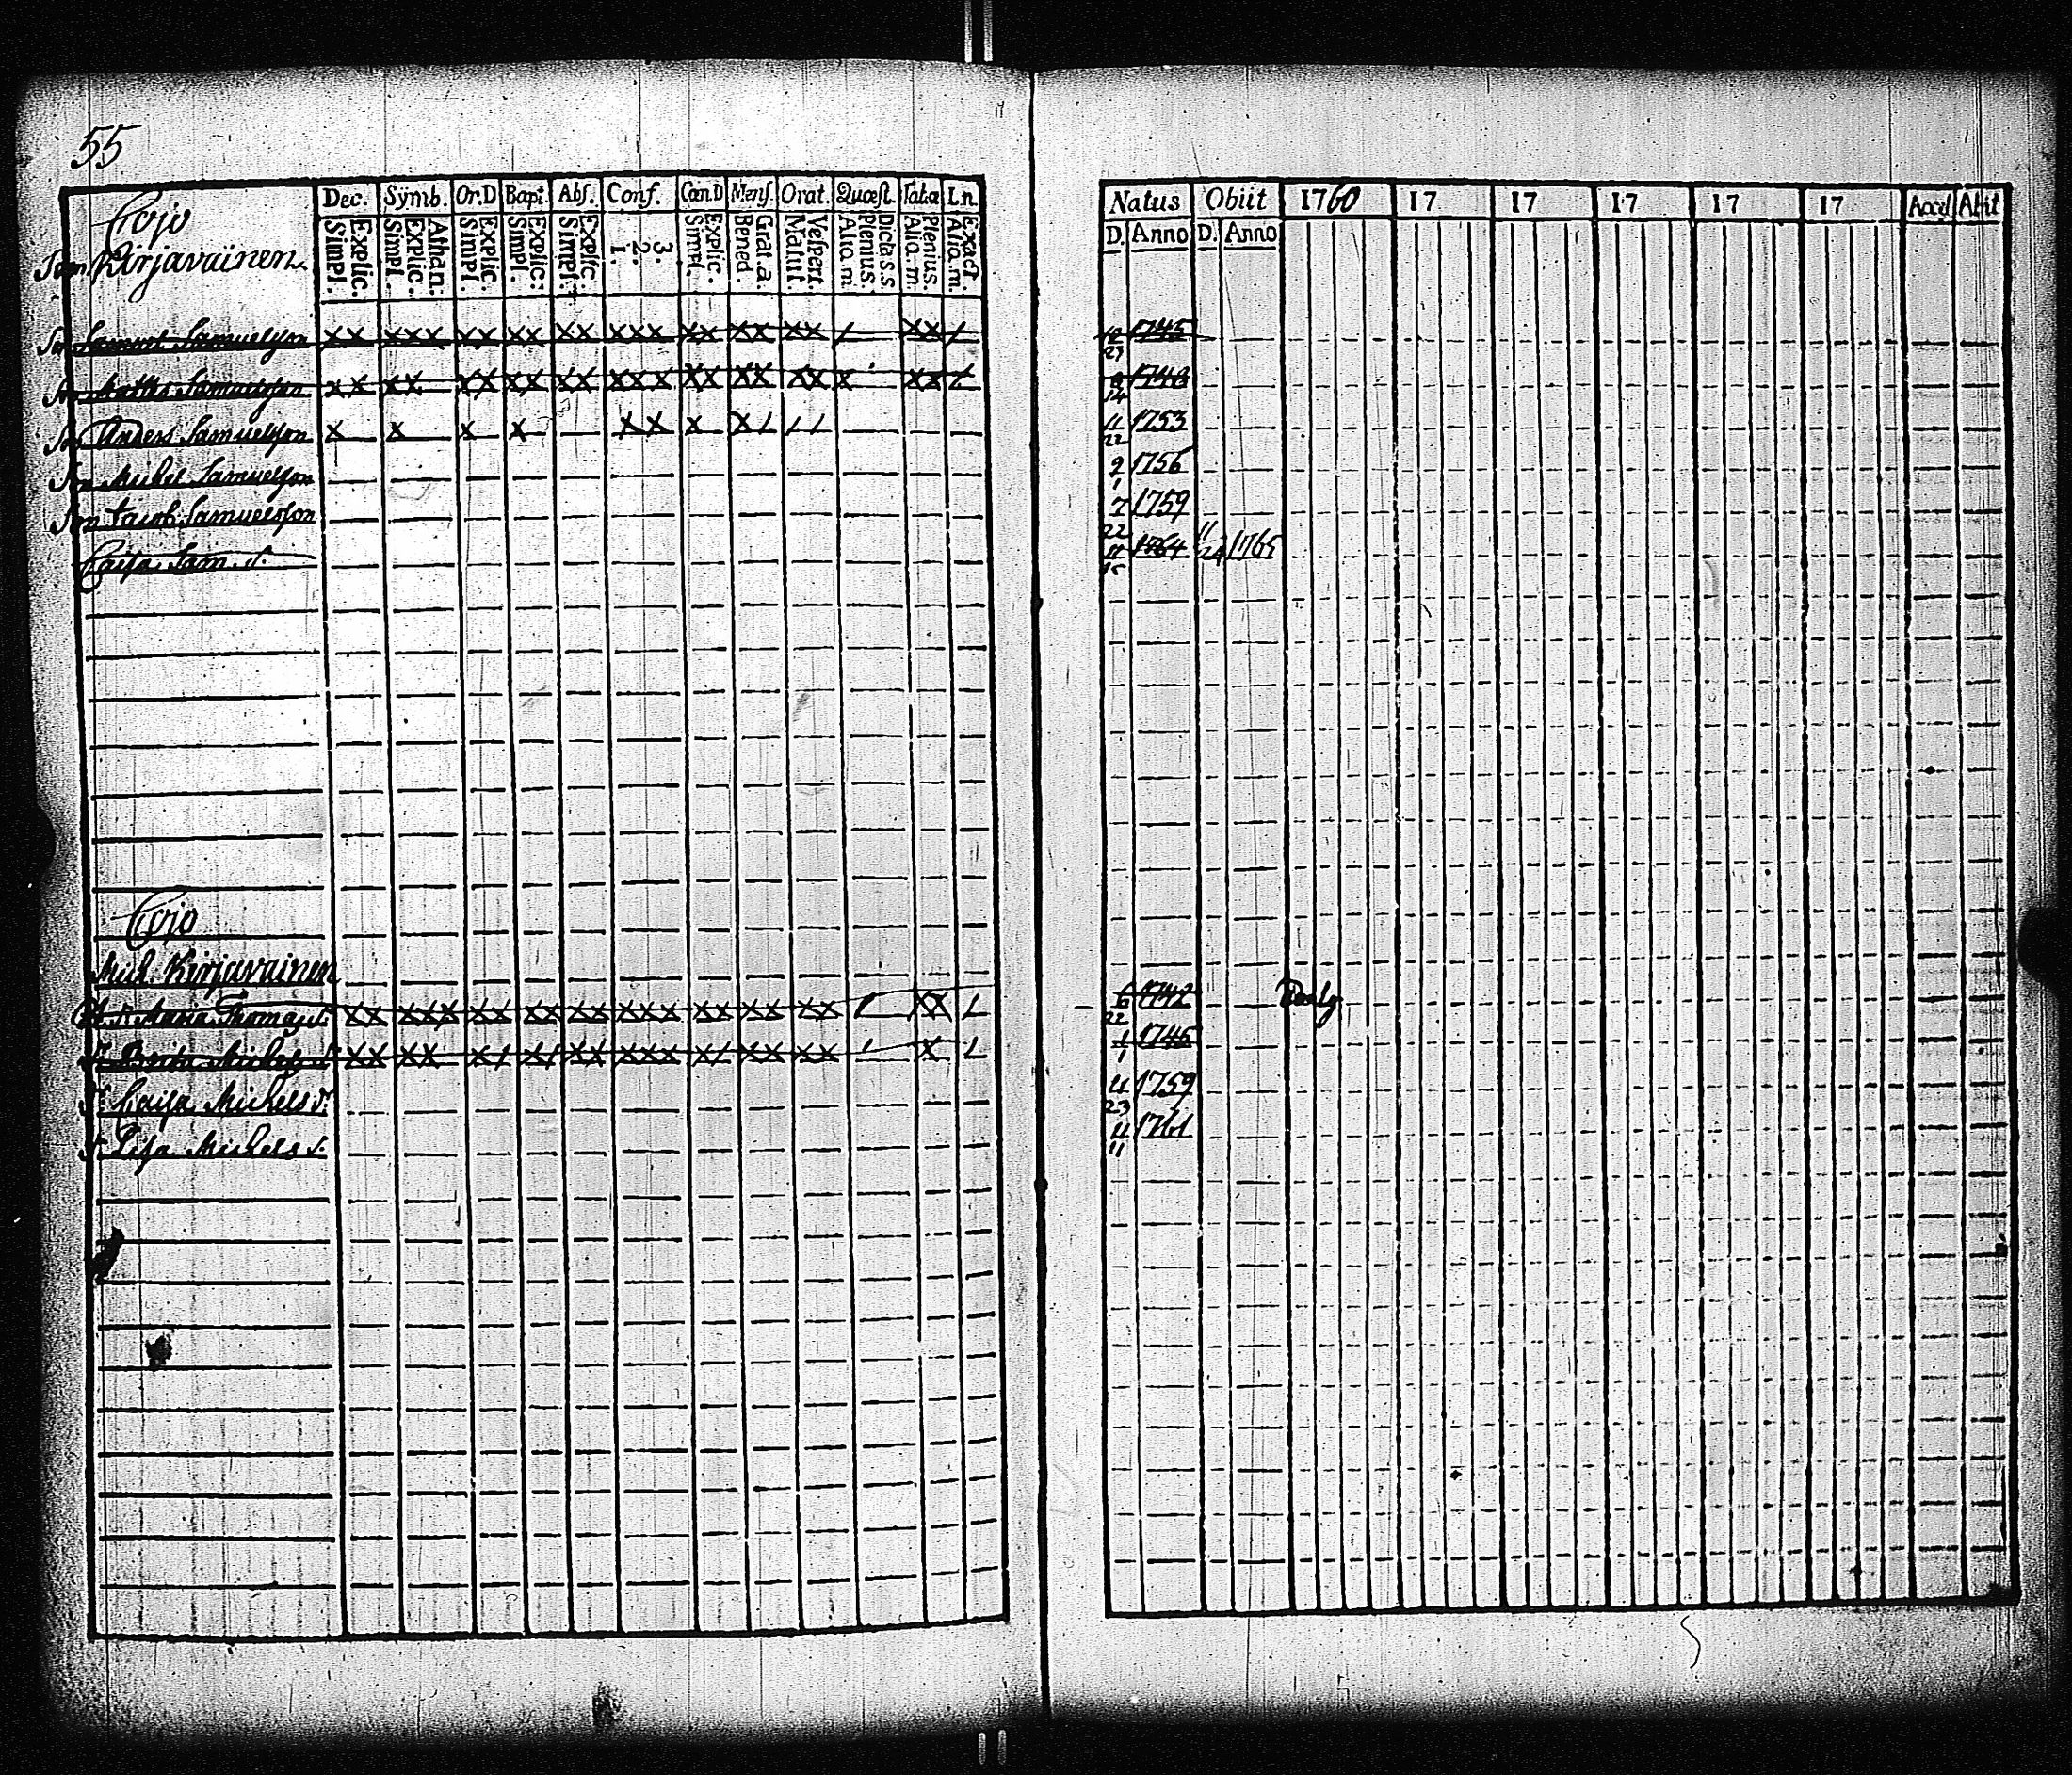 55
Dec. Symb. Or.D Bapt. Abs. Conf. Cœn.D Mens. Orat. Quæst. Tab.œ L.n.
Simpl. Explic. Simpl. Explic. Athan: Simpl. Explic. Simpl. Explic: Simpl. Explic: 1. 2. 3. Simpl. Explic. Bened. Grat.a. Matut. Vespert. Alia.m. Plenius. Dicta.s.s. Alia.m. Plenius. Alia.m. Exact.
Natus Obiit 1760 17 17 17 17 17 Acces Abit
D. Anno D. Anno
Cojo
Sam. Kirjavainen
Son Samuel Samuelsson xx xxx xx xx xx xxx xx xx xx / xx / 12/29 1745
Son Matths Samuelsson xx xx xx xx xx xxx xx xx xx x xx / 1748
Son Anders Samuelsson x x x x xx x x/ // 11/22 1753
Son Michel Samuelsson 9/1 1756
Son Jacob Samuelsson 7/22 1759
Caisa Sam. d. 11/15 1764 11/24 1765
Cojo
Mich. Kirjavainen
Maria Thomæd. xx xxx xx xx xx xxx xx xx xx / xx / 6/22 1742
Brita Michelsd. xx xx x/ x/ xx xxx x/ xx xx / x / 1/1 1745
Dr Caisa Michels d. 11/23 1759
Dr Lisa Michels d. 11/11 1761